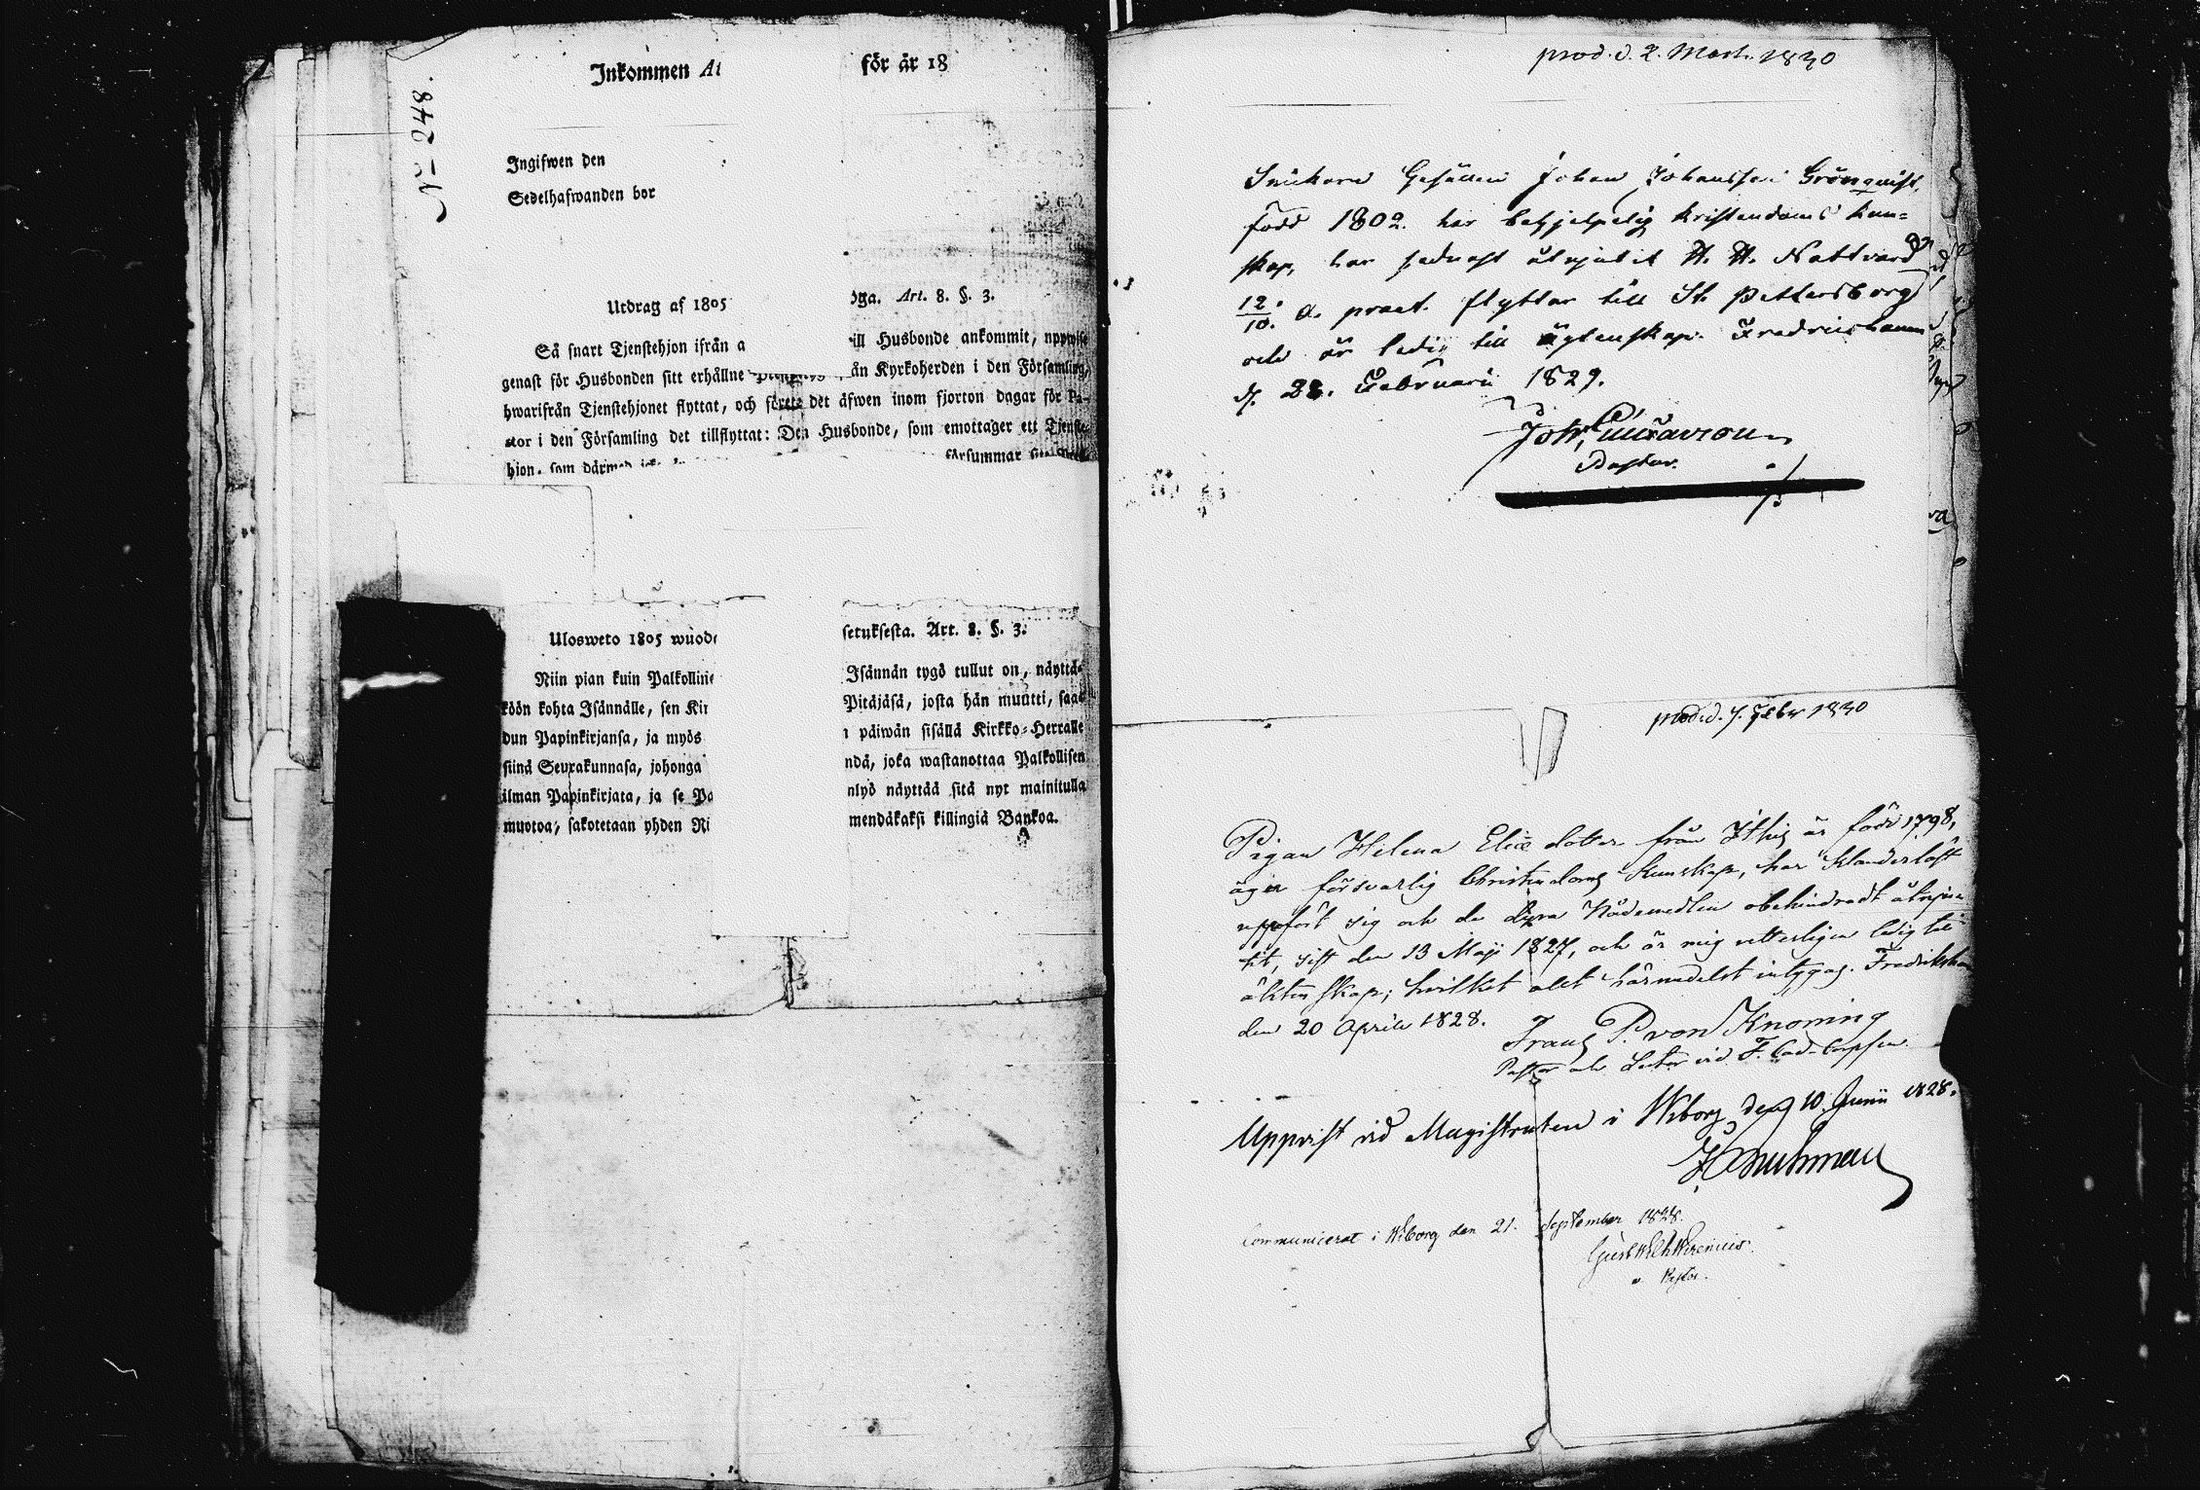 No 248.
Inkommen At för år 18
Ingifwen den
Sedelhafwanden bor
Utdrag af 1805 oga. Art. 8. §. 3.
Så snart Tjenstehjon ifrån a ill Husbonde ankommit, uppwise
genast för Husbonden sitt erhållne ån Kyrkoherden i den Församling,
hwarifrån Tjenstehjonet flyttat, och förete det äfwen inom fjorton dagar för Pa-
stor i den Församling det tillflyttat: Den Husbonde, som emottager ett Tjenste-
hjon, som därmed försummar
Ulosweto 1805 wuode setuksesta. Art. 8. §. 3.
Niin pian kuin Palkollinen Isännän tygö tullut on, näyttä-
köön kohta Isännälle, sen Kir Pitäjäsä, josta hän muutti, saa-
dun Papinkirjansa, ja myös n päiwän sisällä Kirkko-Herralle
siinä Seurakunnasa, johonga ndä, joka wastanottaa Palkollisen
ilman Papinkirjata, ja se Pa nlyö näyttää sitä nyt mainitulla
muotoa, sakotetaan yhden Ri mendäkaksi killingiä Bankoa.
prod. d. 2. Mart. 1830
Snickare Gesällen Johan Johansson Grönquist,
född 1802. har behjelpelig kristendoms kun-
skap, har sednast åtnjutit H. H. Nattvard
12/10. a. praet. flyttar till St. Pettersborg
och är ledig till ägtenskap. Fredrickshamn
d. 28. Februarii 1829.
Pastor.
prod. d. 7. Febr 1830
Pigan Helena Elias dotter från Ithis är född 1798,
äger försvarlig Christendoms Kunskap, har klanderlöst
uppfört sig och de dyra Nådemedlen obehindradt åtnju-
tit, sist den 13 Maji 1827, och är mig vetterligen ledig till
äktenskap; hvilket allt härmedelst intygas. Fredriksha
den 20 Aprile 1828.
Frantz P. von Knorring
Pastor och Lector vid F. Cad-Corpsen.
Uppvist vid Magistraten i Wiborg den 10 Junii 1828.
Communicerat i Wiborg den 21. September 1828.
v. Pastor.